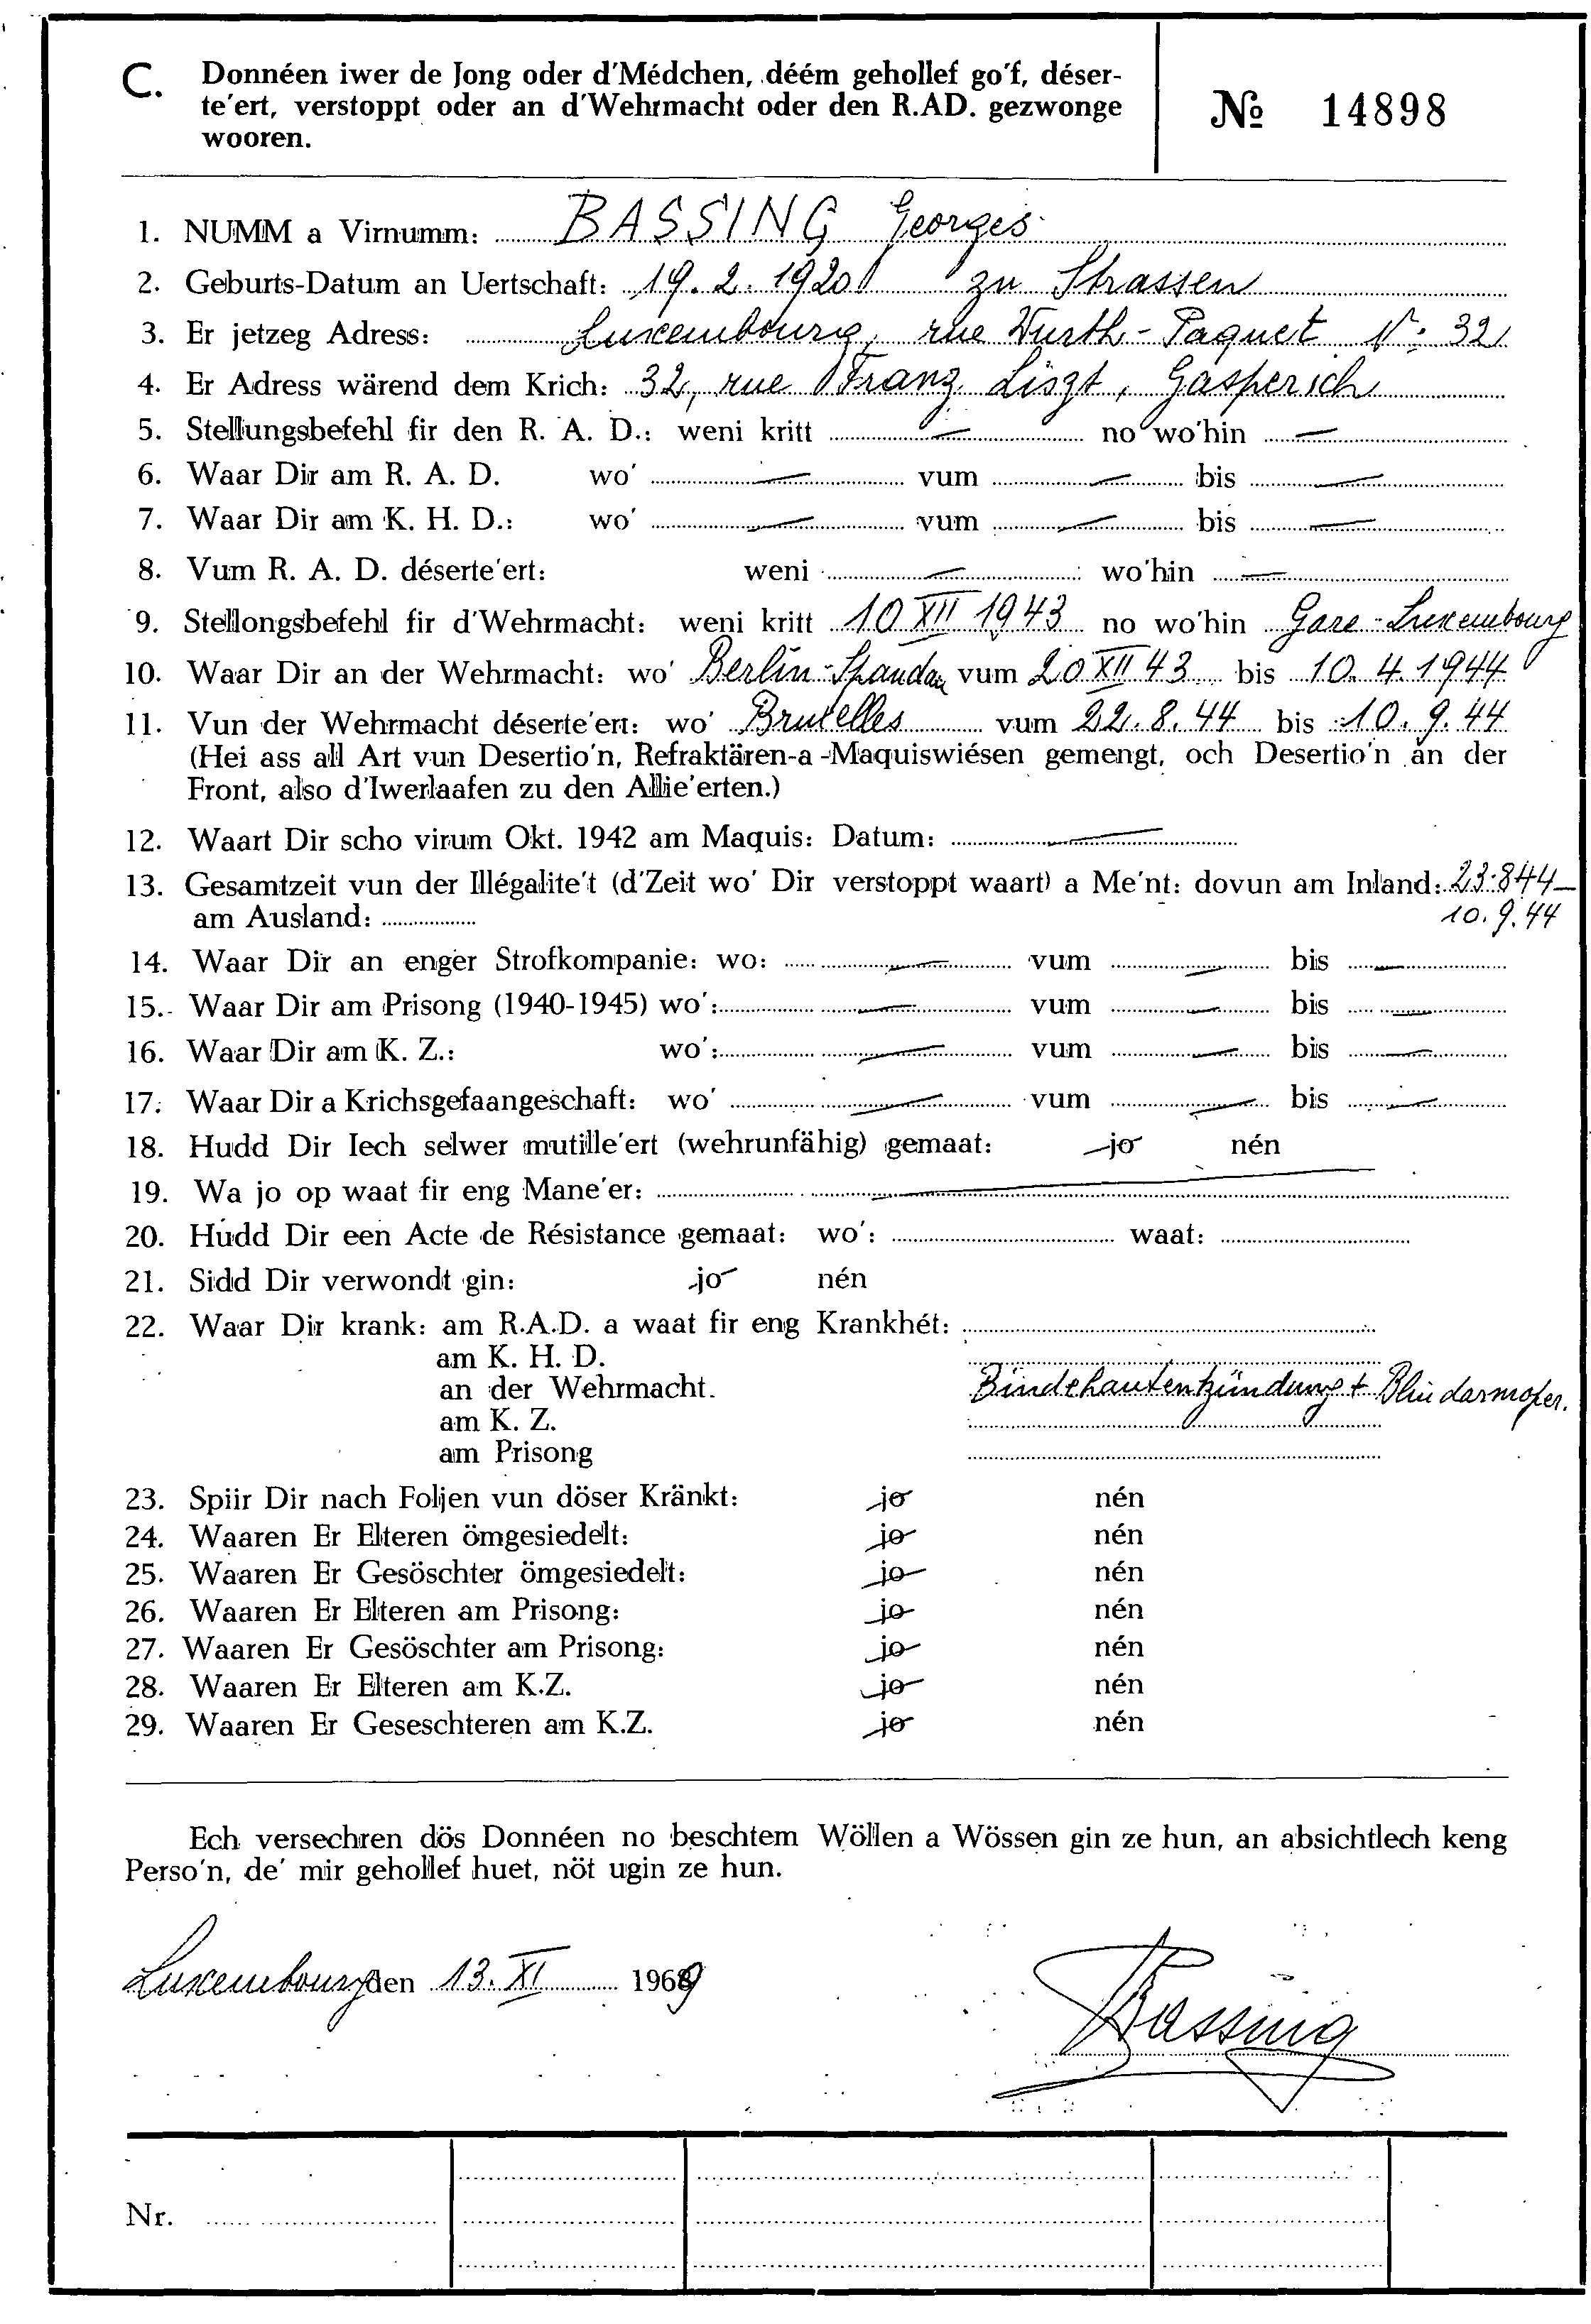 C. Donnéen iwer de Jong oder d'Médchen, déém gehollef go'f, déser-
te'ert, verstoppt oder an d'Wehrmacht oder den R.AD. gezwonge
wooren.
№ 14898
1. NUMM a Virnumm: BASSING Georges
2. Geburts-Datum an Uertschaft: 19.2.1920 zu Strassen
3. Er jetzeg Adress: Luxembourg, rue Wurth-Paquet No: 32
4. Er Adress wärend dem Krich: 32, rue Franz Liszt, Gasperich
5. Stellungsbefehl fir den R. A. D.: weni kritt — no wo'hin —
6. Waar Dir am R. A. D. wo' — vum — bis —
7. Waar Dir am K. H. D.: wo' — vum — bis —
8. Vum R. A. D. déserte'ert: weni — wo'hin —
9. Stellongsbefehl fir d'Wehrmacht: weni kritt 10 XII 1943 no wo'hin Gare-Luxembourg
10. Waar Dir an der Wehrmacht: wo' Berlin-Spandau vum 20 XII 43 bis 10.4.1944
11. Vun der Wehrmacht déserte'ert: wo' Bruxelles vum 22.8.44 bis 10.9.44
(Hei ass all Art vun Desertio'n, Refraktären-a-Maquiswiésen gemengt, och Desertio'n an der
Front, also d'Iwerlaafen zu den Allie'erten.)
12. Waart Dir scho virum Okt. 1942 am Maquis: Datum: —
13. Gesamtzeit vun der Illégalite't (d'Zeit wo' Dir verstoppt waart) a Me'nt: dovun am Inland: 23.844—
am Ausland: 10.9.44
14. Waar Dir an enger Strofkompanie: wo: — vum — bis —
15. Waar Dir am Prisong (1940-1945) wo': — vum — bis —
16. Waar Dir am K. Z.: wo': — vum — bis —
17. Waar Dir a Krichsgefaangeschaft: wo' — vum — bis —
18. Hudd Dir Iech selwer mutille'ert (wehrunfähig) gemaat: jo nén
19. Wa jo op waat fir eng Mane'er: —
20. Hudd Dir een Acte de Résistance gemaat: wo': waat:
21. Sidd Dir verwondt gin: jo nén
22. Waar Dir krank: am R.A.D. a waat fir eng Krankhét:
am K. H. D.
an der Wehrmacht. Bindehautentzündung + Blindarmoper.
am K. Z.
am Prisong
23. Spiir Dir nach Foljen vun döser Kränkt: jo nén
24. Waaren Er Elteren ömgesiedelt: jo nén
25. Waaren Er Gesöschter ömgesiedelt: jo nén
26. Waaren Er Elteren am Prisong: jo nén
27. Waaren Er Gesöschter am Prisong: jo nén
28. Waaren Er Elteren am K.Z. jo nén
29. Waaren Er Geseschteren am K.Z. jo nén
Ech versechren dös Donnéen no beschtem Wöllen a Wössen gin ze hun, an absichtlech keng
Perso'n, de' mir gehollef huet, nöt ugin ze hun.
Luxembourg den 13. XI 1969
Bassing
Nr.